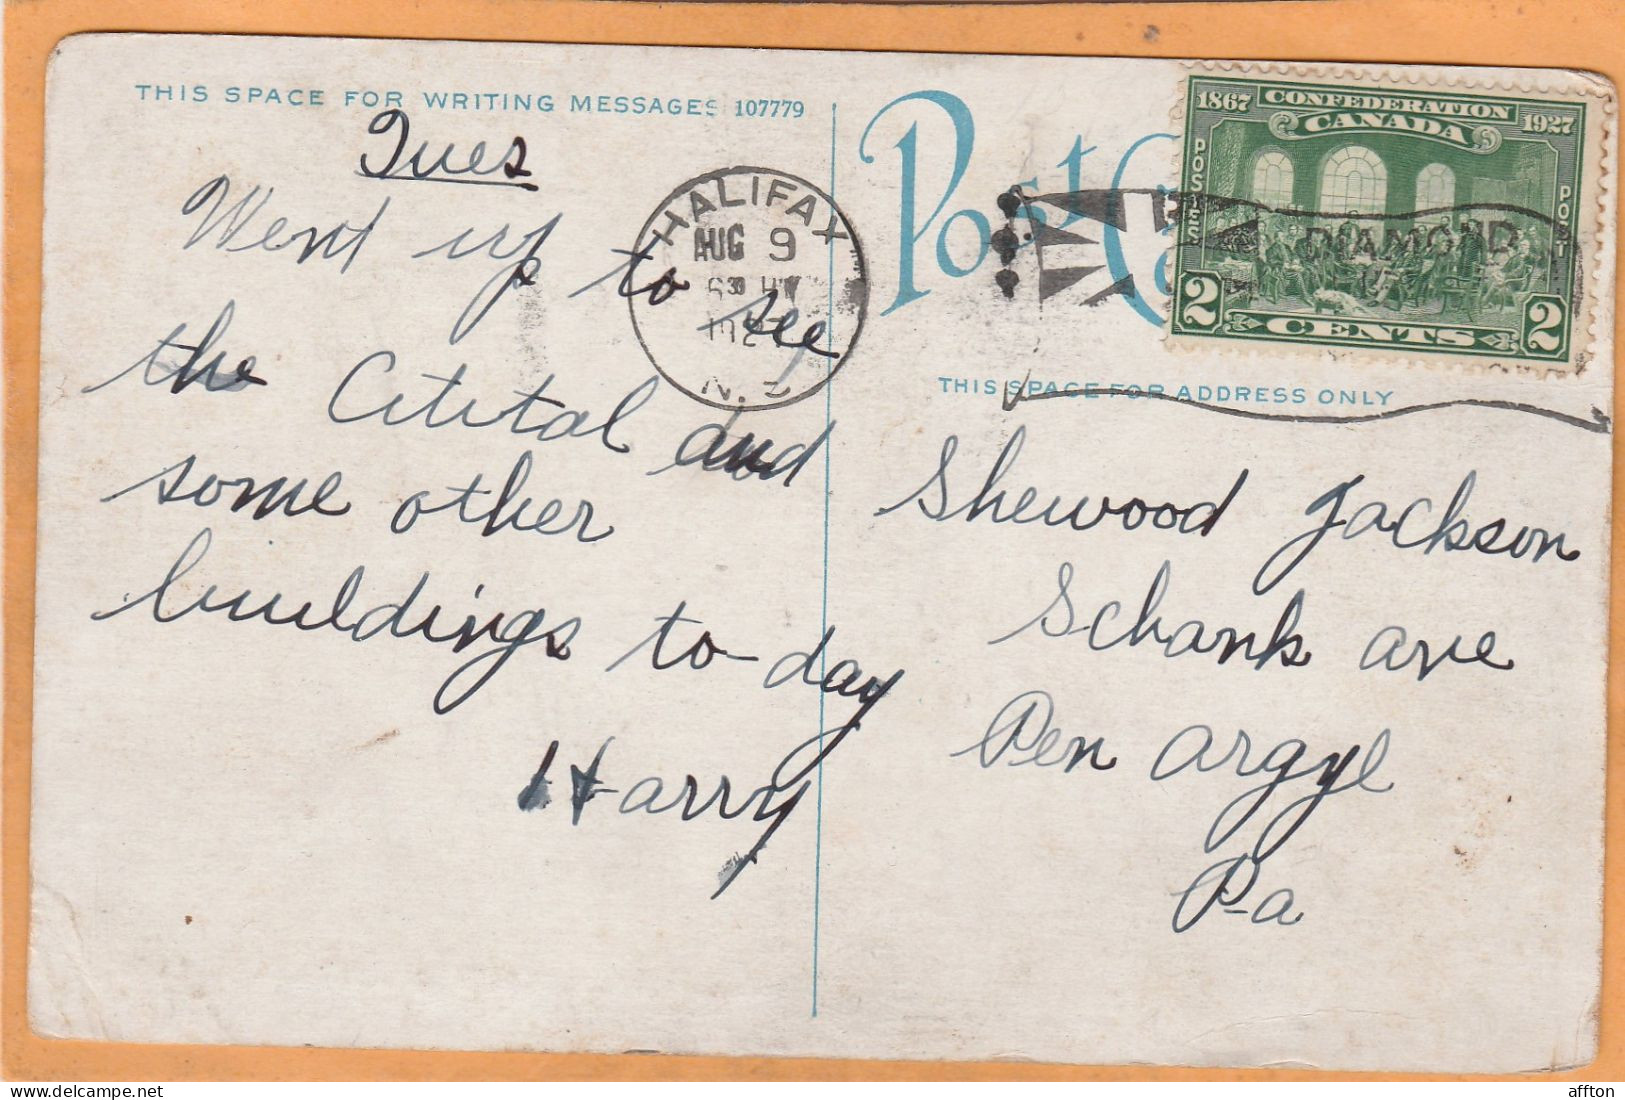 THIS SPACE FOR WRITING MESSAGES 107779
Tues
Went up to see
the Citital and
some other
buuldings to-day
Harry
HALIFAX
AUG 9
630
N.S
Post
1867 CONFEDERATION 1927
CANADA
POSTES
POST
DIAMOND
2 CENTS 2
THIS SPACE FOR ADDRESS ONLY
Shewood Jackson
Schank ave
Pen argyl
Pa
affton